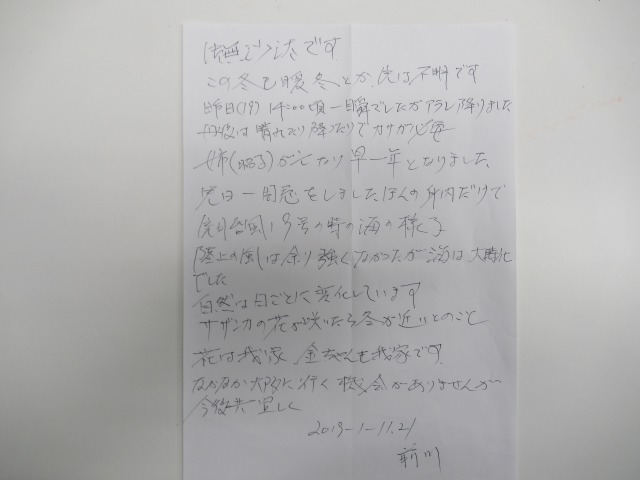 御無沙汰です
この冬も暖冬とか、先は不明です
昨日(19) 14:00頃一瞬でしたがアラレ降りました
丹後は晴れたり降ったりでカサが必要
姉(昭子)が亡くなり早一年となりました、
先日一周忌をしました、ほんの身内だけで
先月台風19号の時の海の様子
陸上の風は余り強くなかったが海は大時化
でした
自然は日ごとに変化しています
サザンカの花が咲いたら冬が近いとのこと
花は我家 金ちゃんも我家です
なかなか大阪に行く機会がありませんが
今後共宜しく
2019-1-11.21
前川